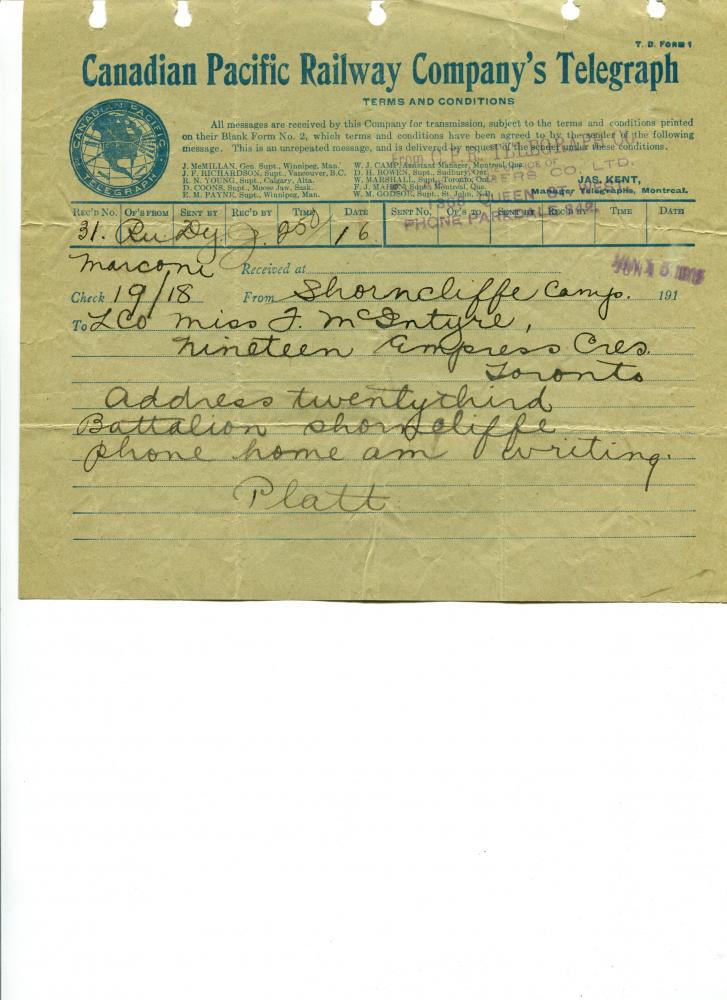 T. D. FORM 1
Canadian Pacific Railway Company's Telegraph
TERMS AND CONDITIONS
CANADIAN PACIFIC
TELEGRAPH
All messages are received by this Company for transmission, subject to the terms and conditions printed
on their Blank Form No. 2, which terms and conditions have been agreed to by the sender of the following
message. This is an unrepeated message, and is delivered by request of the sender under these conditions.
J. McMILLAN, Gen. Supt., Winnipeg, Man. W. J. CAMP, Assistant Manager, Montreal, Que.
J. F. RICHARDSON, Supt., Vancouver, B.C. D. H. BOWEN, Supt., Sudbury, Ont.
R. N. YOUNG, Supt., Calgary, Alta. W. MARSHALL, Supt., Toronto, Ont.
D. COONS, Supt., Moose Jaw, Sask. Supt., Montreal, Que.
E. M. PAYNE, Supt., Winnipeg, Man. W. M. GODSOE, Supt., St. John, N.B.
JAS. KENT,
Manager Telegraphs, Montreal.
From
OFFICE OF
CO. LTD.
QUEEN ST. WEST
PHONE PARKDALE
REC'D No. Op's FROM SENT BY REC'D BY TIME DATE SENT No. Op's TO SENT BY REC'D BY TIME DATE
31. Ru Dy. J. 250 16
Marconi Received at
JUN 16 1915
Check 19/18 From Shorncliffe Camp. 191
To LCO Miss F. McIntyre,
Nineteen Empress Cres.
Toronto
Address twentythird
Battalion shorncliffe
phone home am writing.
Platt